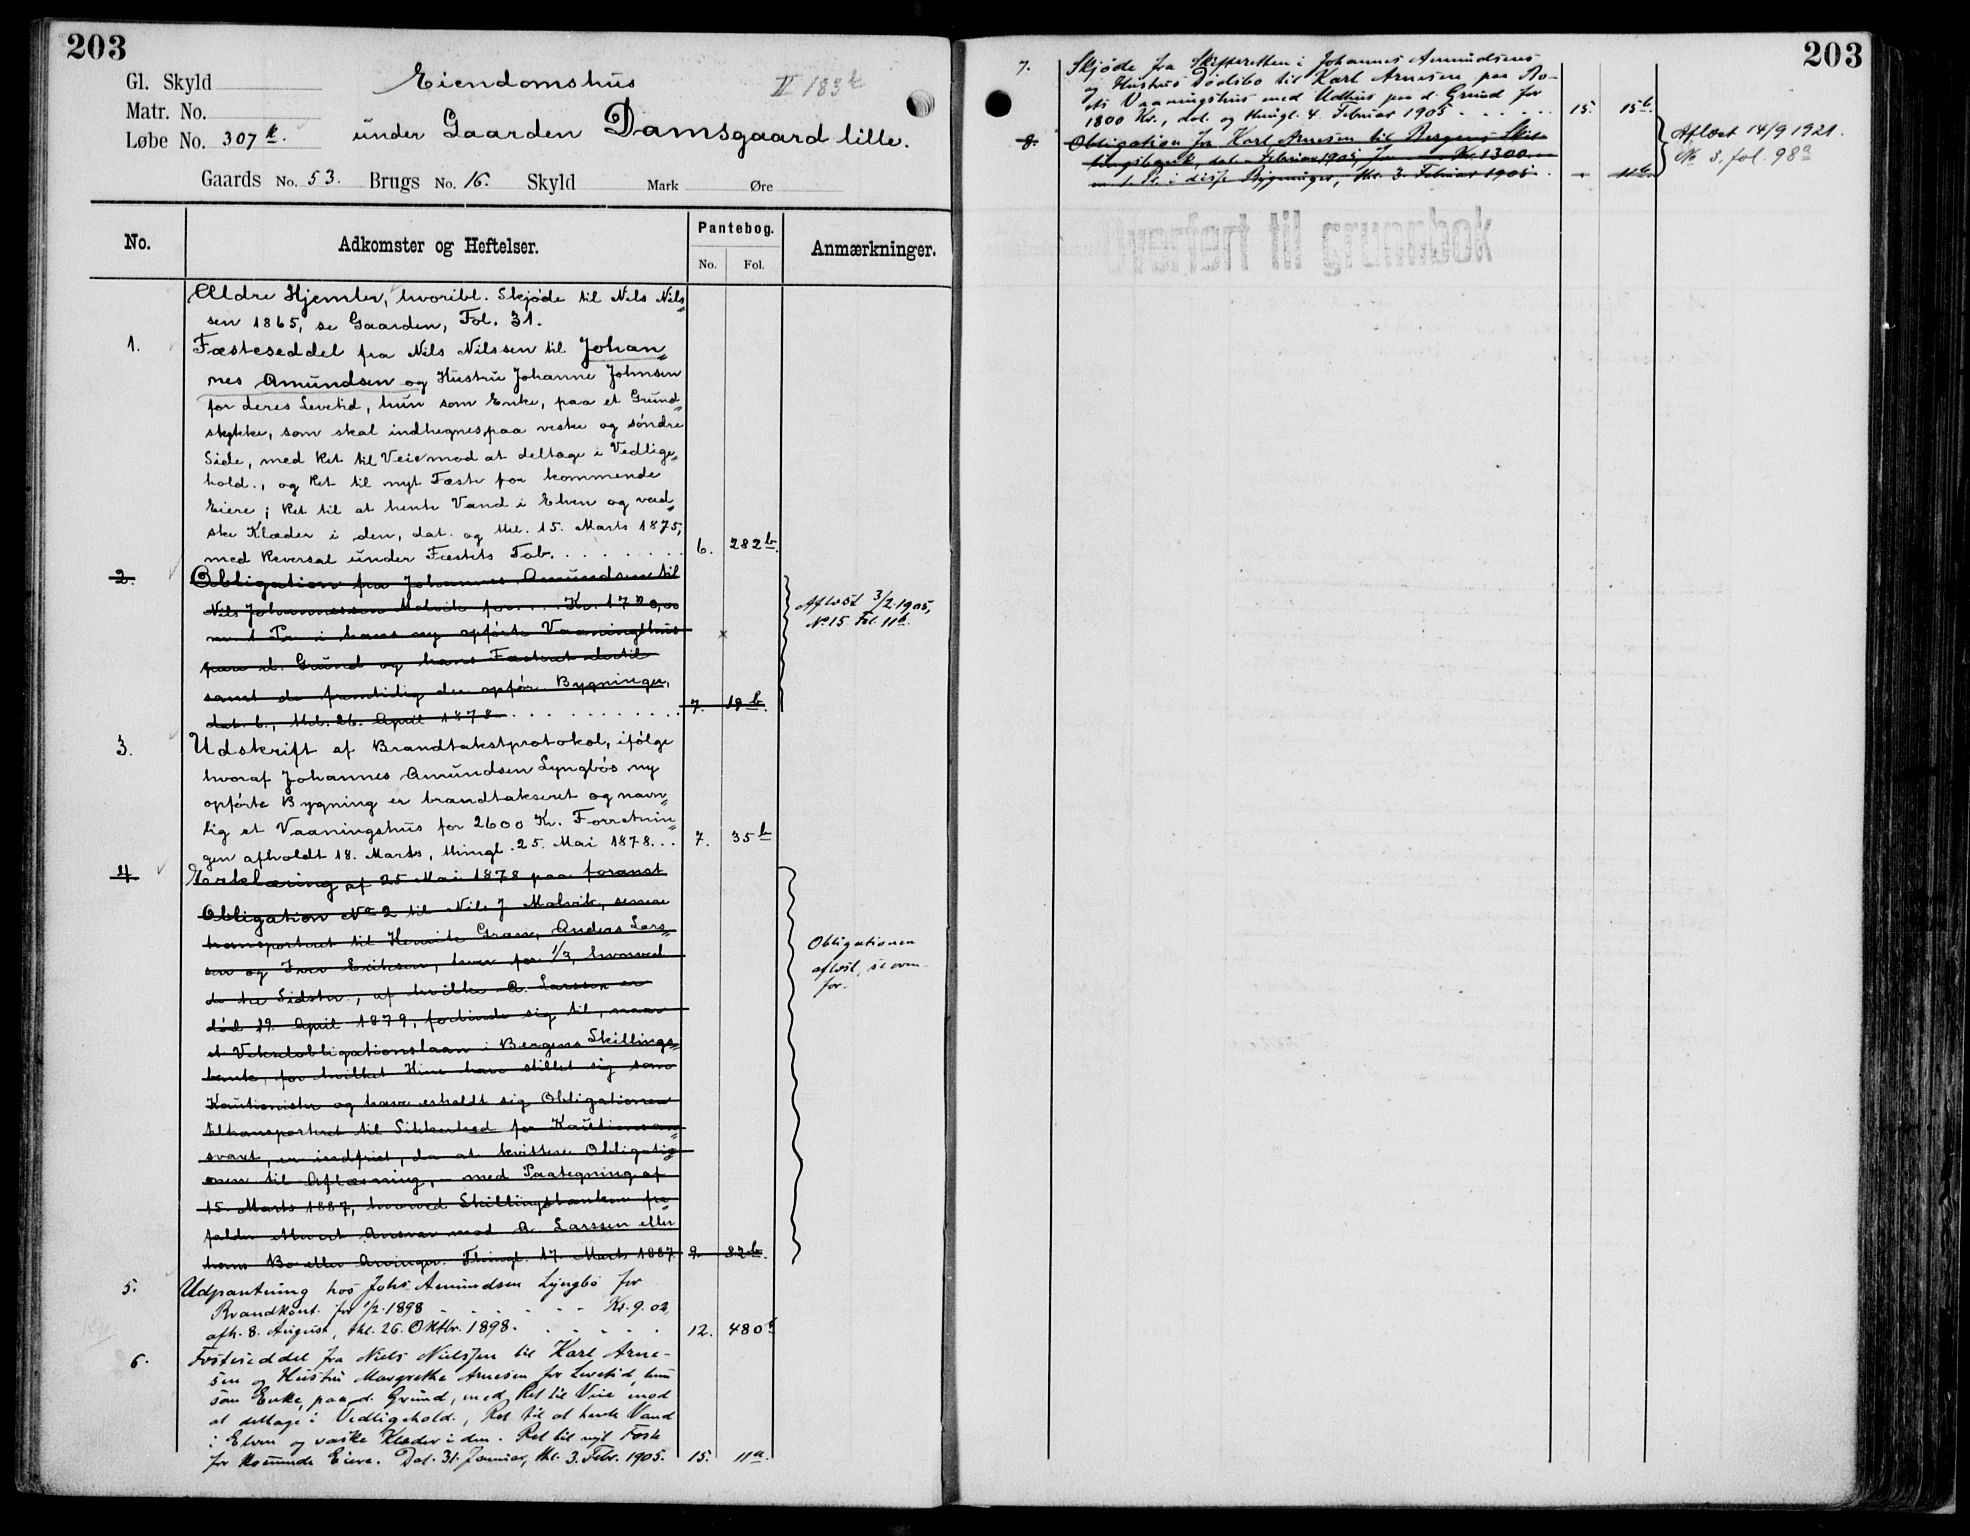 203
Gl. Skyld
Matr. No.
Løbe No. 307 k.
Eiendomshus
II 183 k
under Gaarden Damsgaard lille.
Gaards No. 53. Brugs No. 16. Skyld Mark Øre
No. Adkomster og Heftelser. Pantebog. No. Fol. Anmærkninger.
Ældre Hjemler, hvoribl. Skjøde til Nils Nils„
sen 1865, se Gaarden, Fol. 31.
1. Fæsteseddel fra Nils Nilssen til Johan„
nes Amundsen og Hustru Johanne Johnsen
for deres Levetid, hun som Enke, paa et Grund„
stykke, som skal indhegnes paa vestre og søndre
Side, med Ret til Vei mod at deltage i Vedlige„
hold., og Ret til nyt Fæste for kommende
Eiere; Ret til at hente Vand i Elven og vad„
ske Klæder i den, dat. og thl. 15. Marts 1875,
med Reversal under Fæstets Tab. . . . . . . . 6. 282 b.
2. Obligation fra Johannes Amundsen til
Nils Johannessen Malvik for . . . Kr. 1720,00
m. 1 Pr. i hans ny opførte Vaaningshus
paa d. Grund og hans Fæsteret dertil
samt de fremtidig der opfør. Bygninger,
dat. 6., thl. 26. April 1878 . . . . . . . . . 7. 19 b.
Aflæst 3/2 1905,
No 15 Fol. 11 b.
3. Udskrift af Brandtakstprotokol, ifølge
hvoraf Johannes Amundsen Lyngbøs ny
opførte Bygning er brandtakseret og navn„
lig et Vaaningshus for 2600 Kr. Forretnin„
gen afholdt 18. Marts, thingl. 25. Mai 1878. . . 7. 35 b
4. Erklæring af 25 Mai 1878 paa foranst
Obligation No 2 til Nils J Malvik, senere
transporteret til Henrik Grase, Anders Lars„
sen og Iver Eriksen, hver for 1/3, hvorved
de to Sidste., af hvilke A. Larssen er
død 29. April 1879, forbinde sig til, naar
et Vekselobligationslaan i Bergens Skillings„
bank, for hvilket Hine have stillet sig som
Kautionister og have erholdt sig Obligationen
tiltransporteret til Sikkerhed for Kautionsan„
svaret, er indfriet, da at kvittere Obligatio„
onen til Aflæsning, – med Paategning af
15. Marts 1887, hvorved Skillingsbanken fra„
falder ethvert Ansvar mod A. Larssen eller
hans Bo eller Arvinger. Thingl. 17. Marts 1887. 9. 82 b.
Obligationen
aflæst, se oven
for.
5. Udpantning hos Johs Amundsen Lyngbø for
Brandkont. for 1/2 1898 . . . . . . Kr. 9.02,
afh. 8. August, thl. 26. Oktbr. 1898. . . . . . 12. 480 b
6. Festeseddel fra Niels Nielssen til Karl Arne-
sen og Hustru Margrethe Arnesen for Levetid, hun
som Enke, paa d. Grund, med Ret til Veie mod
at deltage i Vedligehold., Ret til at hente Vand
i Elven og vaske Klæder i den. Ret til nyt Feste
for kommende Eiere. Dat. 31. Januar, thl. 3. Febr. 1905. 15. 11 a.
203
7. Skjøde fra Skifteretten i Johannes Amundsens
og Hustrus Dødsbo til Karl Arnesen paa Bo-
ets Vaaningshus med Udhus paa d. Grund for
1800 Kr., dat. og thingl. 4. Februar 1905 . . . . . . 15. 15 b.
8. Obligation fra Karl Arnesen til Bergens Skil-
lingsbank, dat. Februar 1905, for Kr. 1300.
m. 1. Pr. i disse Bygninger, thl. 3. Februar 1905. . – 11 b.
Aflæst 14/9 1921.
No 3. fol. 98 a
Overført til grunnbok